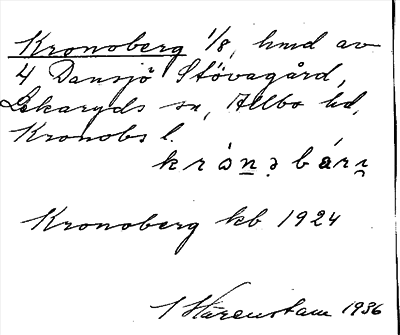 Kronoberg 1/8, hmd av
4 Dansjö Stövagård,
Lekaryds sn, Allbo hd,
Kronobs l.
krònəbárɪ
Kronoberg kb 1924
Härenstam 1936